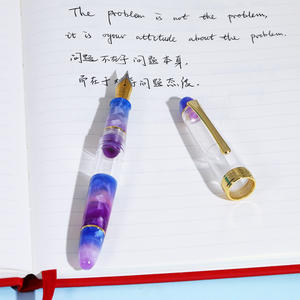 The problem is not the problem,
it is your attitude about the problem.
问题不在于问题本身,
而在于对待问题态度.